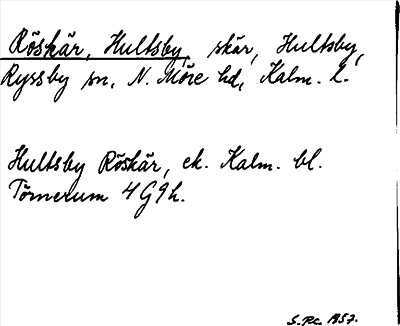 Röskär, Hultsby, skär, Hultsby,
Ryssby sn, N. Möre hd, Kalm. l.
Hultsby Röskär, ek. Kalm. bl.
Törnerum 4G9h.
1957.